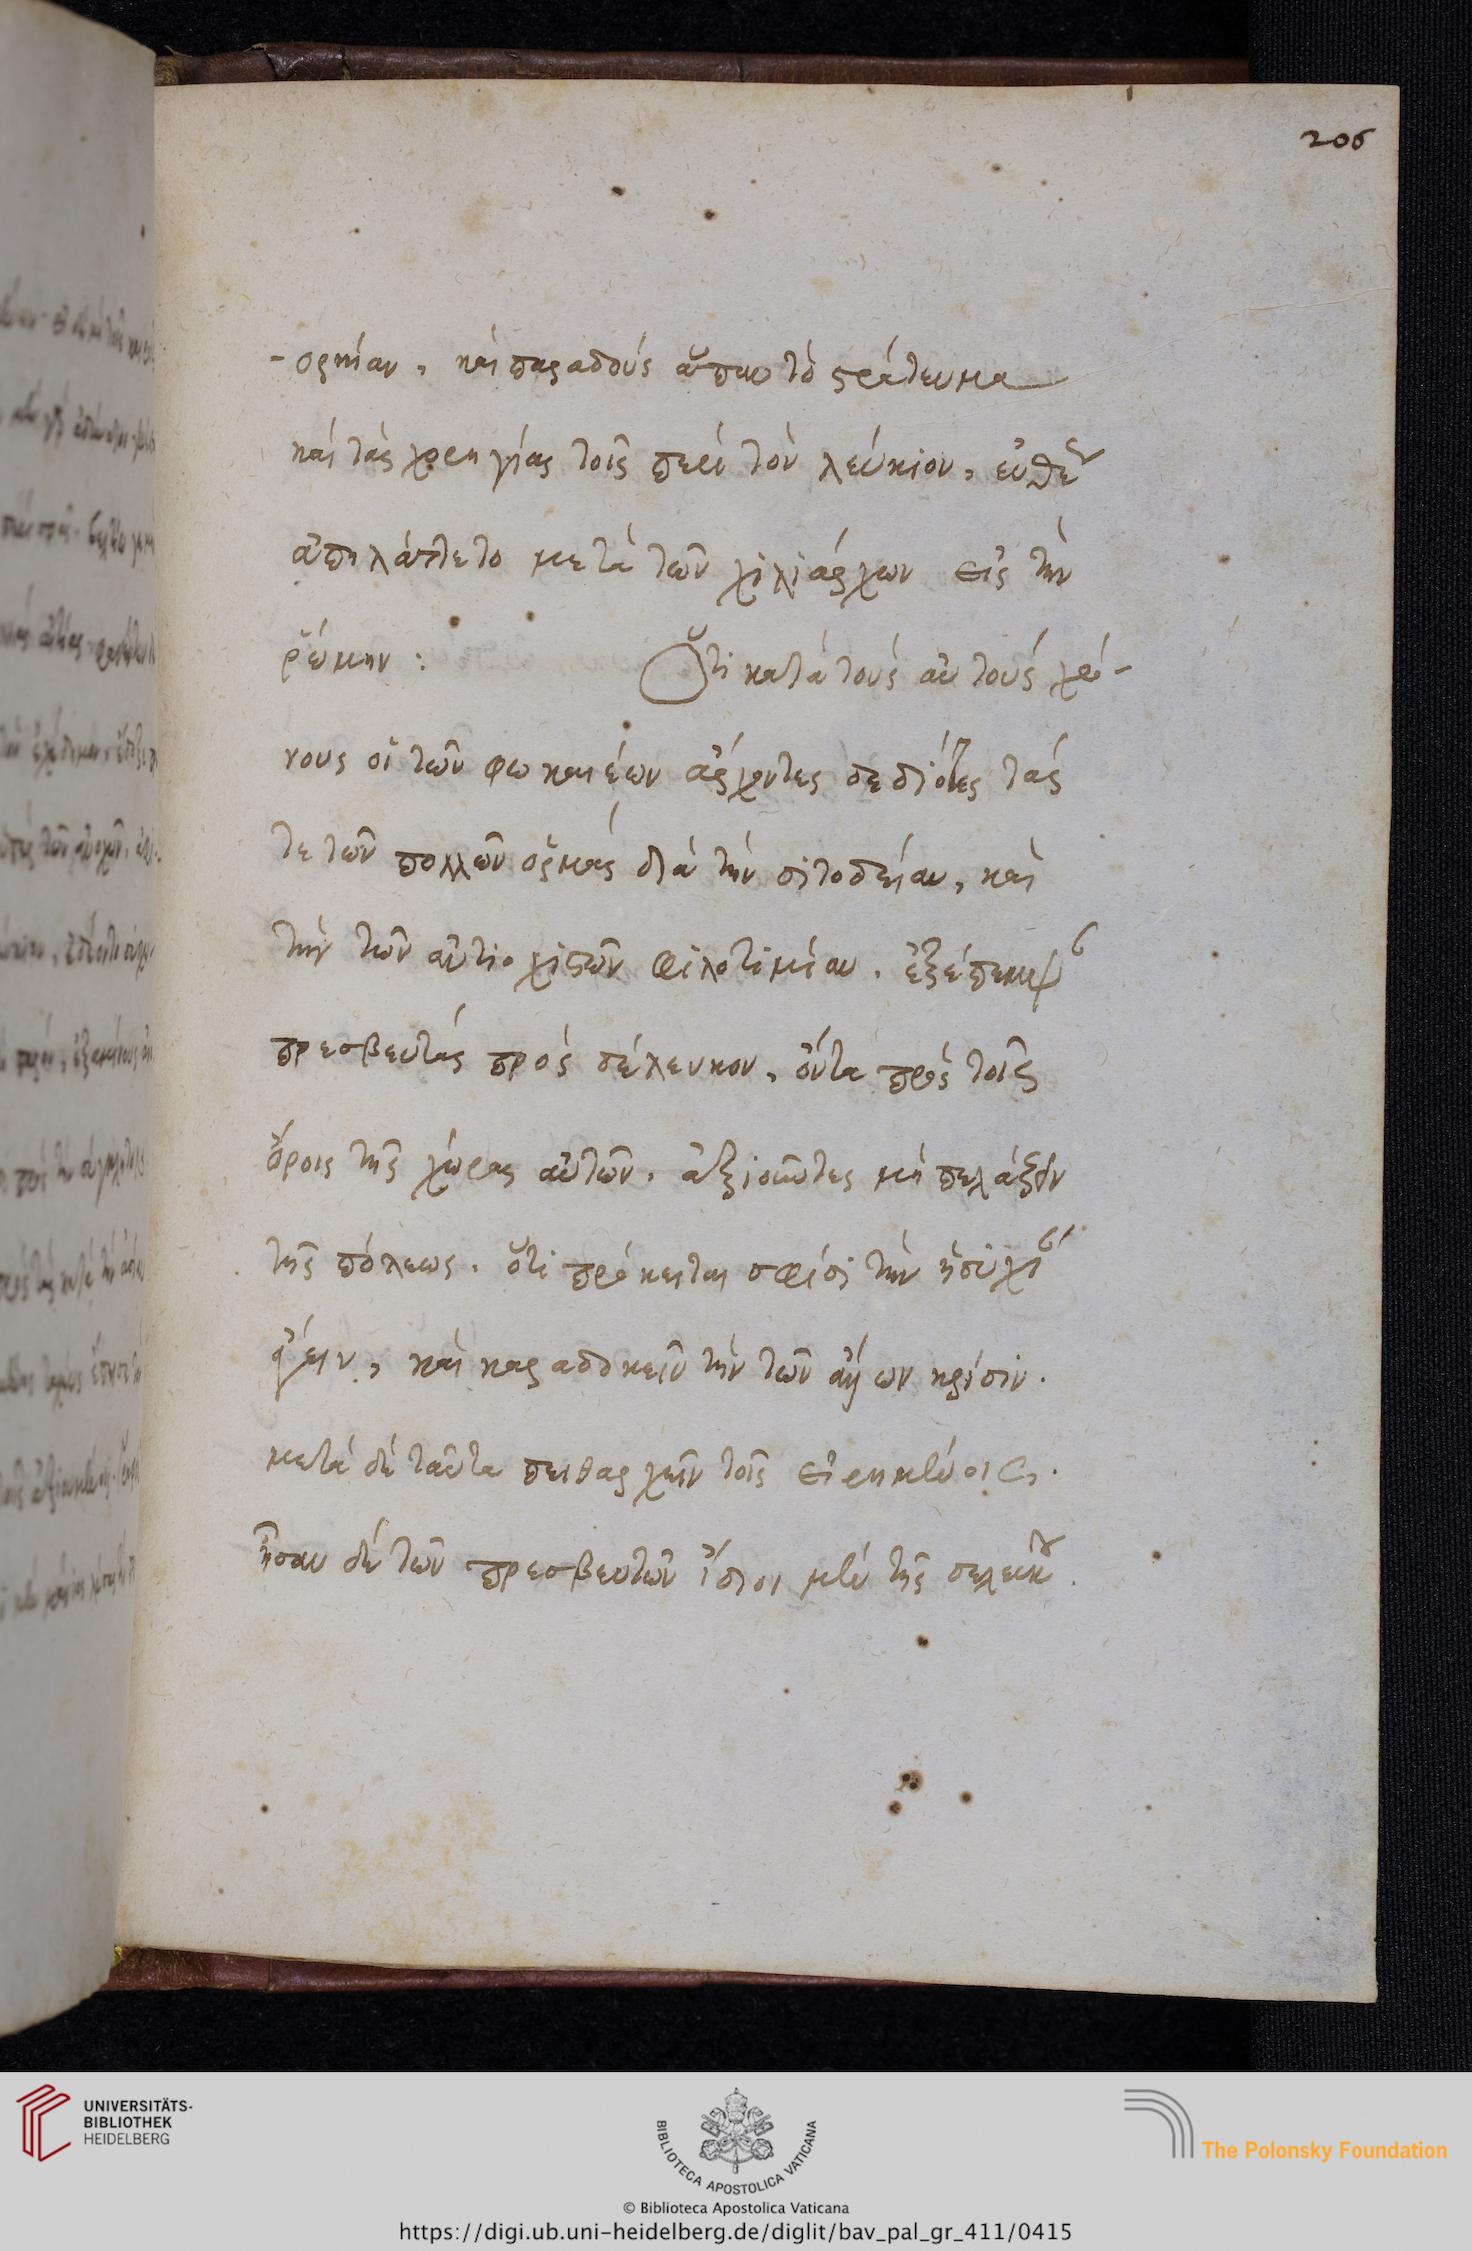 206
-ορκίαν, καὶ παραδοὺς ἅπαν τὸ στράτευμα
καὶ τὰς χορηγίας τοῖς περὶ τὸν λεύκιον, εὐθέως
ἀπηλάττετο μετὰ τῶν χιλιάρχων εἰς τὴν
ῥώμην: Ὅτι κατὰ τοὺς αὐτοὺς χρό-
νους οἱ τῶν φωκαιέων ἄρχοντες δεδιότες τάς
τε τῶν πολλῶν ὁρμὰς διὰ τὴν σιτοδείαν, καὶ
τὴν τῶν ἀντιοχιστῶν φιλοτιμίαν. ἐξέπεμψαν
πρεσβευτὰς πρὸς σέλευκον, ὄντα πρὸς τοῖς
ὅροις τῆς χώρας αὐτῶν. ἀξιοῦντες μὴ πελάζειν
τῆς πόλεως. ὅτι πρόκειται σφίσι τὴν ἡσυχίαν
ἄγειν, καὶ καραδοκεῖν τὴν τῶν ὅλων κρίσιν.
μετὰ δὲ ταῦτα πειθαρχεῖν τοῖς εἰρημένοις.
ἦσαν δὲ τῶν πρεσβευτῶν ἴδιοι μὲν τῆς σελεύκου
UNIVERSITÄTS-
BIBLIOTHEK
HEIDELBERG
BIBLIOTECA APOSTOLICA VATICANA
The Polonsky Foundation
© Biblioteca Apostolica Vaticana
https://digi.ub.uni-heidelberg.de/diglit/bav_pal_gr_411/0415